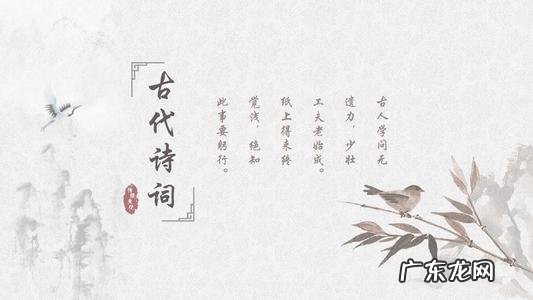 古代诗词
古人学问无
遗力，少壮
工夫老始成。
纸上得来终
觉浅，绝知
此事要躬行。
广东龙网